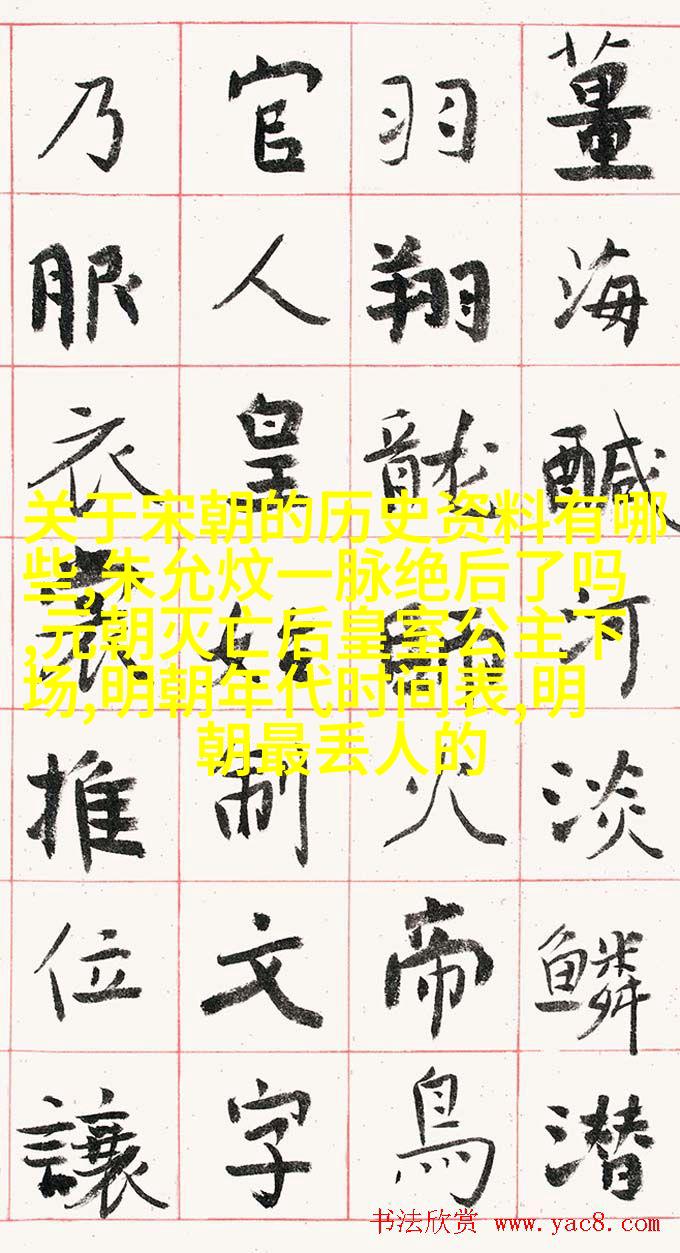 薑海醎河淡鱗潜
羽翔龍師火帝鳥
官人皇始制文字
乃服衣裳推位讓
关于宋朝的历史资料有哪
些,朱允炆一脉绝后了吗
,元朝灭亡后皇室公主下
场,明朝年代时间表,明
朝最丢人的
书法欣赏 www.yac8.com